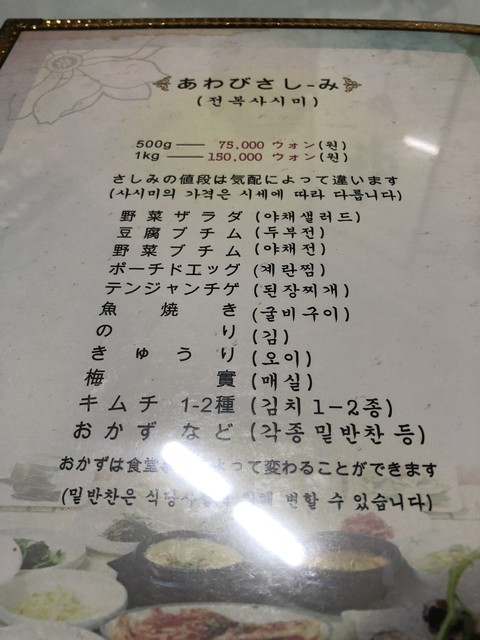 あわびさし-み
(전복사시미)
500g — 75,000 ウォン(원)
1kg — 150,000 ウォン(원)
さしみの値段は気配によって違います
(사시미의 가격은 시세에 따라 다릅니다)
野菜ザラダ (야채샐러드)
豆腐ブチム (두부전)
野菜ブチム (야채전)
ポーチドエッグ (계란찜)
テンジャンチゲ (된장찌개)
魚焼き (굴비구이)
のり (김)
きゅうり (오이)
梅實 (매실)
キムチ 1-2種 (김치 1-2종)
おかずなど (각종 밑반찬 등)
おかずは食堂 よって変わることができます
(밑반찬은 식당 변할 수 있습니다)